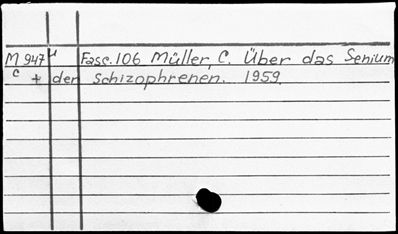 M 947 u Fasc. 106 Müller, C. Über das Senium
c + der Schizophrenen. 1959.